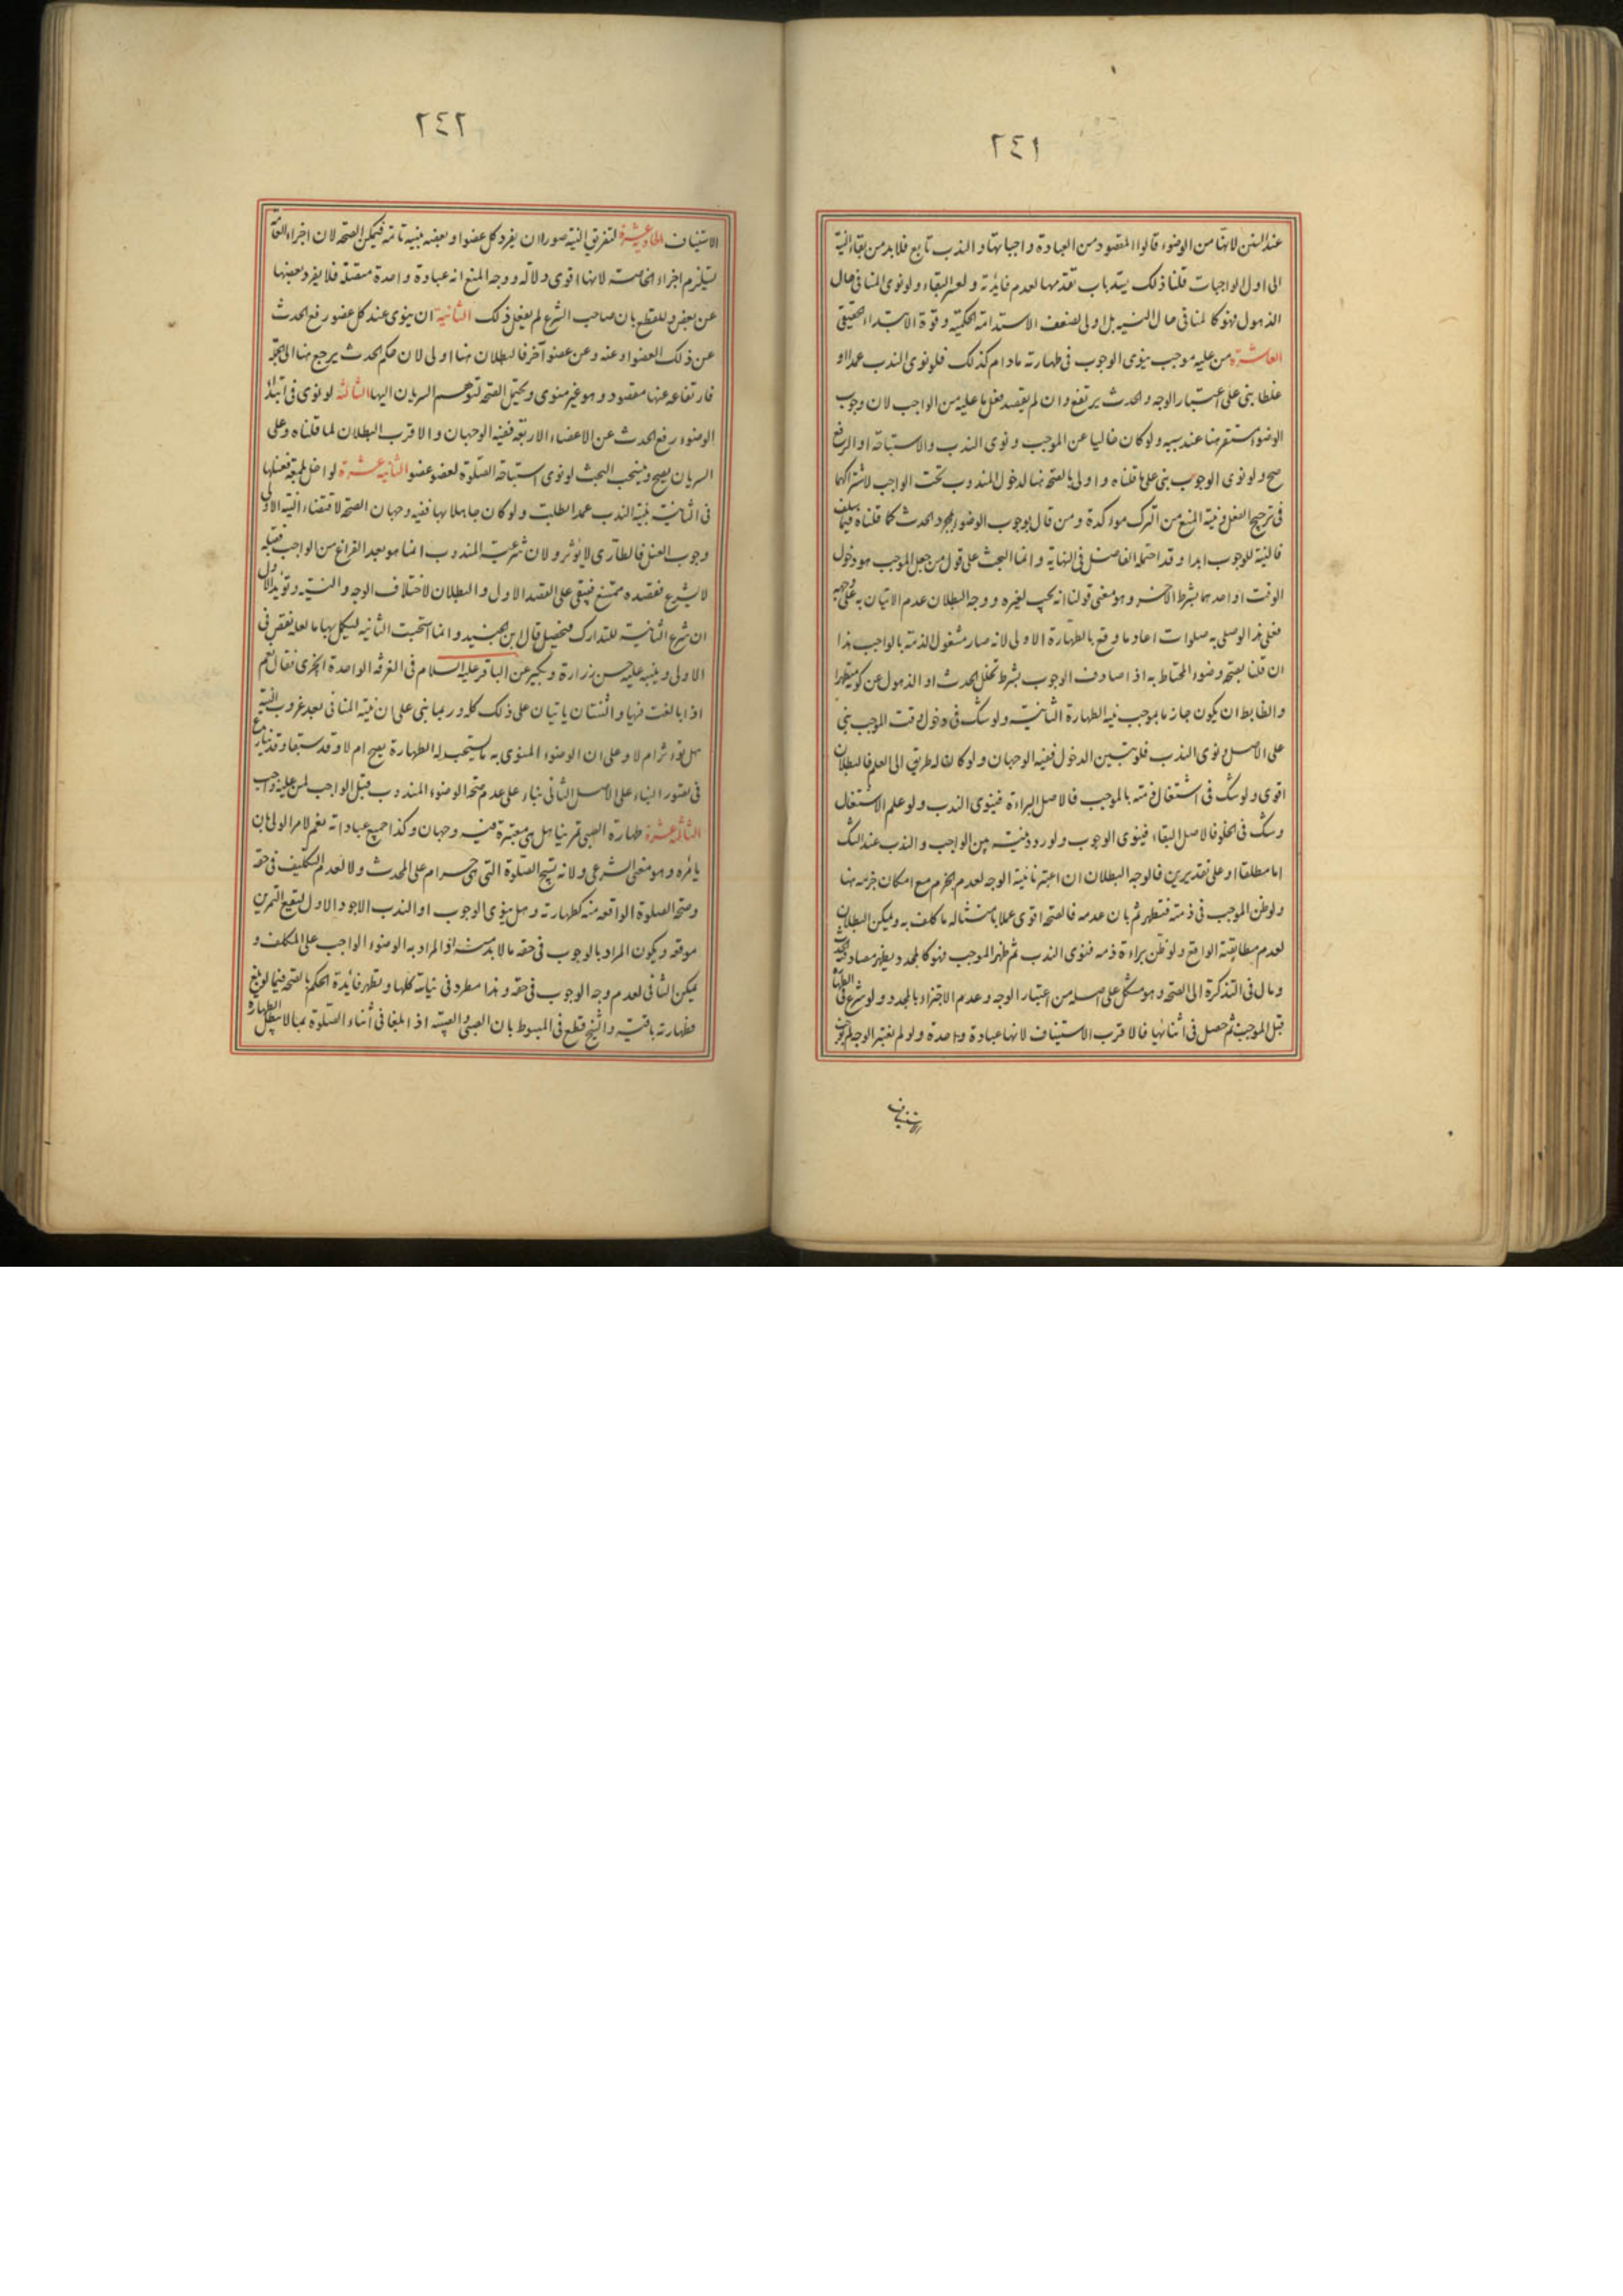 ٢٤١
عند السنن لانها من الوضوء قالوا المقصود من العبادة واجباتها والندب تابع فلا بد من بقاء النية
الى اول الواجبات قلنا ذلك يسد باب تقدمها لعدم فايدته ولعسر البقاء ولو نوى المنافى حال
الذهول فهو كالمنافى حال النية بل اولى لضعف الاستدامة الحكمية وقوة الابتداء الحقيقى
العاشرة من عليه موجب ينوى الوجوب فى طهارته مادام كذلك فلو نوى الندب عمدا او
غلطا بنى على اعتبار الوجه والحدث يرتفع وان لم يقصد فعل ما عليه من الواجب لان وجوب
الوضوء مستقر هنا عند سببه ولو كان خاليا عن الموجب ونوى الندب والاستباحة او الرفع
صح ولو نوى الوجوب بنى على ما قلناه واولى بالصحة هنا لدخول المندوب تحت الواجب لاشتراكهما
فى ترجيح الفعل ونية المنع من الترك مؤكدة ومن قال بوجوب الوضوء بمجرد الحدث كما قلناه فيما سلف
فالنية للوجوب ابدا وقد احتمله الفاضل فى النهاية وانما البحث على قول من جعل الموجب هو دخول
الوقت او احدهما بشرط الآخر وهو معنى قولنا انه يجب لغيره ووجه البطلان عدم الاتيان به على وجهه
فعلى هذا لو صلى به صلوات اعاد ما وقع بالطهارة الاولى لانه صار مشغول الذمة بالواجب هذا
ان قلنا بصحة وضوء المحتاط به اذا صادف الوجوب بشرط تخلل الحدث او الذهول عن كونه متطهرا
والضابط ان يكون جازما بموجب نية الطهارة الثانية ولو شك فى دخول وقت الموجب بنى
على الاصل ونوى الندب فلو تبين الدخول ففيه الوجهان ولو كان له طريق الى العلم فالبطلان
اقوى ولو شك فى اشتغال ذمته بالموجب فالاصل البراءة فينوى الندب ولو علم الاشتغال
وشك فى الخلو فالاصل البقاء فينوى الوجوب ولو ردد نيته بين الواجب والندب عند الشك
اما مطلقا او على تقديرين فالوجه البطلان ان اعتبرنا نية الوجه لعدم الجزم مع امكان جزمه هنا
ولو ظن الموجب فى ذمته فتطهر ثم بان عدمه فالصحة اقوى عملا بامتثاله ما كلف به ويمكن البطلان
لعدم مطابقته الواقع ولو ظن براءة ذمته فنوى الندب ثم ظهر الموجب فهو كالمجدد يظهر مصادفته الحدث
ومال فى التذكرة الى الصحة وهو مشكل على اصله من اعتبار الوجه وعدم الاجتزاء بالمجدد ولو شرع فى الطهارة
قبل الموجب ثم حصل فى اثنائها فالاقرب الاستيناف لانها عبادة واحدة ولو لم نعتبر الوجه لم يجب
الاستيناف
٢٤٢
الاستيناف الحادية عشرة لتفريق النية صور ان يفرد كل عضو او بعضه بنية تامة فيمكن الصحة لان اجزاء العامة
يستلزم اجزاء الخاصة لانها اقوى دلالة ووجه المنع انه عبادة واحدة متصلة فلا يفرد بعضها
عن بعض وللقطع بان صاحب الشرع لم يفعل ذلك الثانية ان ينوى عند كل عضو رفع الحدث
عن ذلك العضو او عنه وعن عضو آخر فالبطلان هنا اولى لان حكم الحدث يرجع هنا الى الجملة
فارتفاعه عنها مقصود وهو غير منوى ويحتمل الصحة لتوهم السريان اليها الثالثة لو نوى فى ابتداء
الوضوء رفع الحدث عن الاعضاء الاربعة ففيه الوجهان والاقرب البطلان لما قلناه وعلى
السريان يصح وينسحب البحث لو نوى استباحة الصلوة لعضو عضو الثانية عشرة لو اخل بلمعة فغسلها
فى الثانية بنية الندب عمدا بطلت ولو كان جاهلا بها ففيه وجهان الصحة لاقتضاء النية الاولى
وجوب الغسل فالطارى لا يؤثر ولان شرعية المندوب انما هو بعد الفراغ من الواجب فقبله
لا يشرع فقصده ممتنع فيبقى على القصد الاول والبطلان لاختلاف الوجه والنية وتؤيد الاول
ان شرع الثانية للتدارك فيحصل قال ابن الجنيد وانما استحبت الثانية ليكمل بها ما لعله نقص فى
الاولى وينبه عليه حسن زرارة وبكير عن الباقر عليه السلام فى الغرفة الواحدة اتجزى فقال نعم
اذا بالغت فيها والثنتان ياتيان على ذلك كله وربما بنى على ان نية المنافى بعد غروب النية
هل تؤثر ام لا وعلى ان الوضوء المنوى به ما يستحب له الطهارة يصح ام لا وقد سبقا وقد ينازع
فى تصور البناء على الاصل الثانى بناء على عدم صحة الوضوء المندوب قبل الواجب لمن عليه واجب
الثالثة عشرة طهارة الصبى تمرينا هل هى معتبرة فيه وجهان وكذا جميع عباداته نعم لامر الولى بان
يامره وهو معنى الشرعى ولانه تبيح الصلوة التى هى حرام على المحدث ولا لعدم التكليف فى حقه
وصحة الصلوة الواقعة منه كطهارته وهل ينوى الوجوب او الندب الاجود الاول ليقع التمرين
موقعه ويكون المراد بالوجوب فى حقه ما لا بد منه اذ المراد به الوضوء الواجب على المكلف و
يمكن الثانى لعدم وجه الوجوب فى حقه وهذا مطرد فى نياته كلها ويظهر فائدة الحكم بالصحة فيما لو بلغ
فطهارته باقية والشيخ قطع فى المبسوط بان الصبى والصبية اذا بلغا فى أثناء الصلوة بما لا يبطل الطهارة